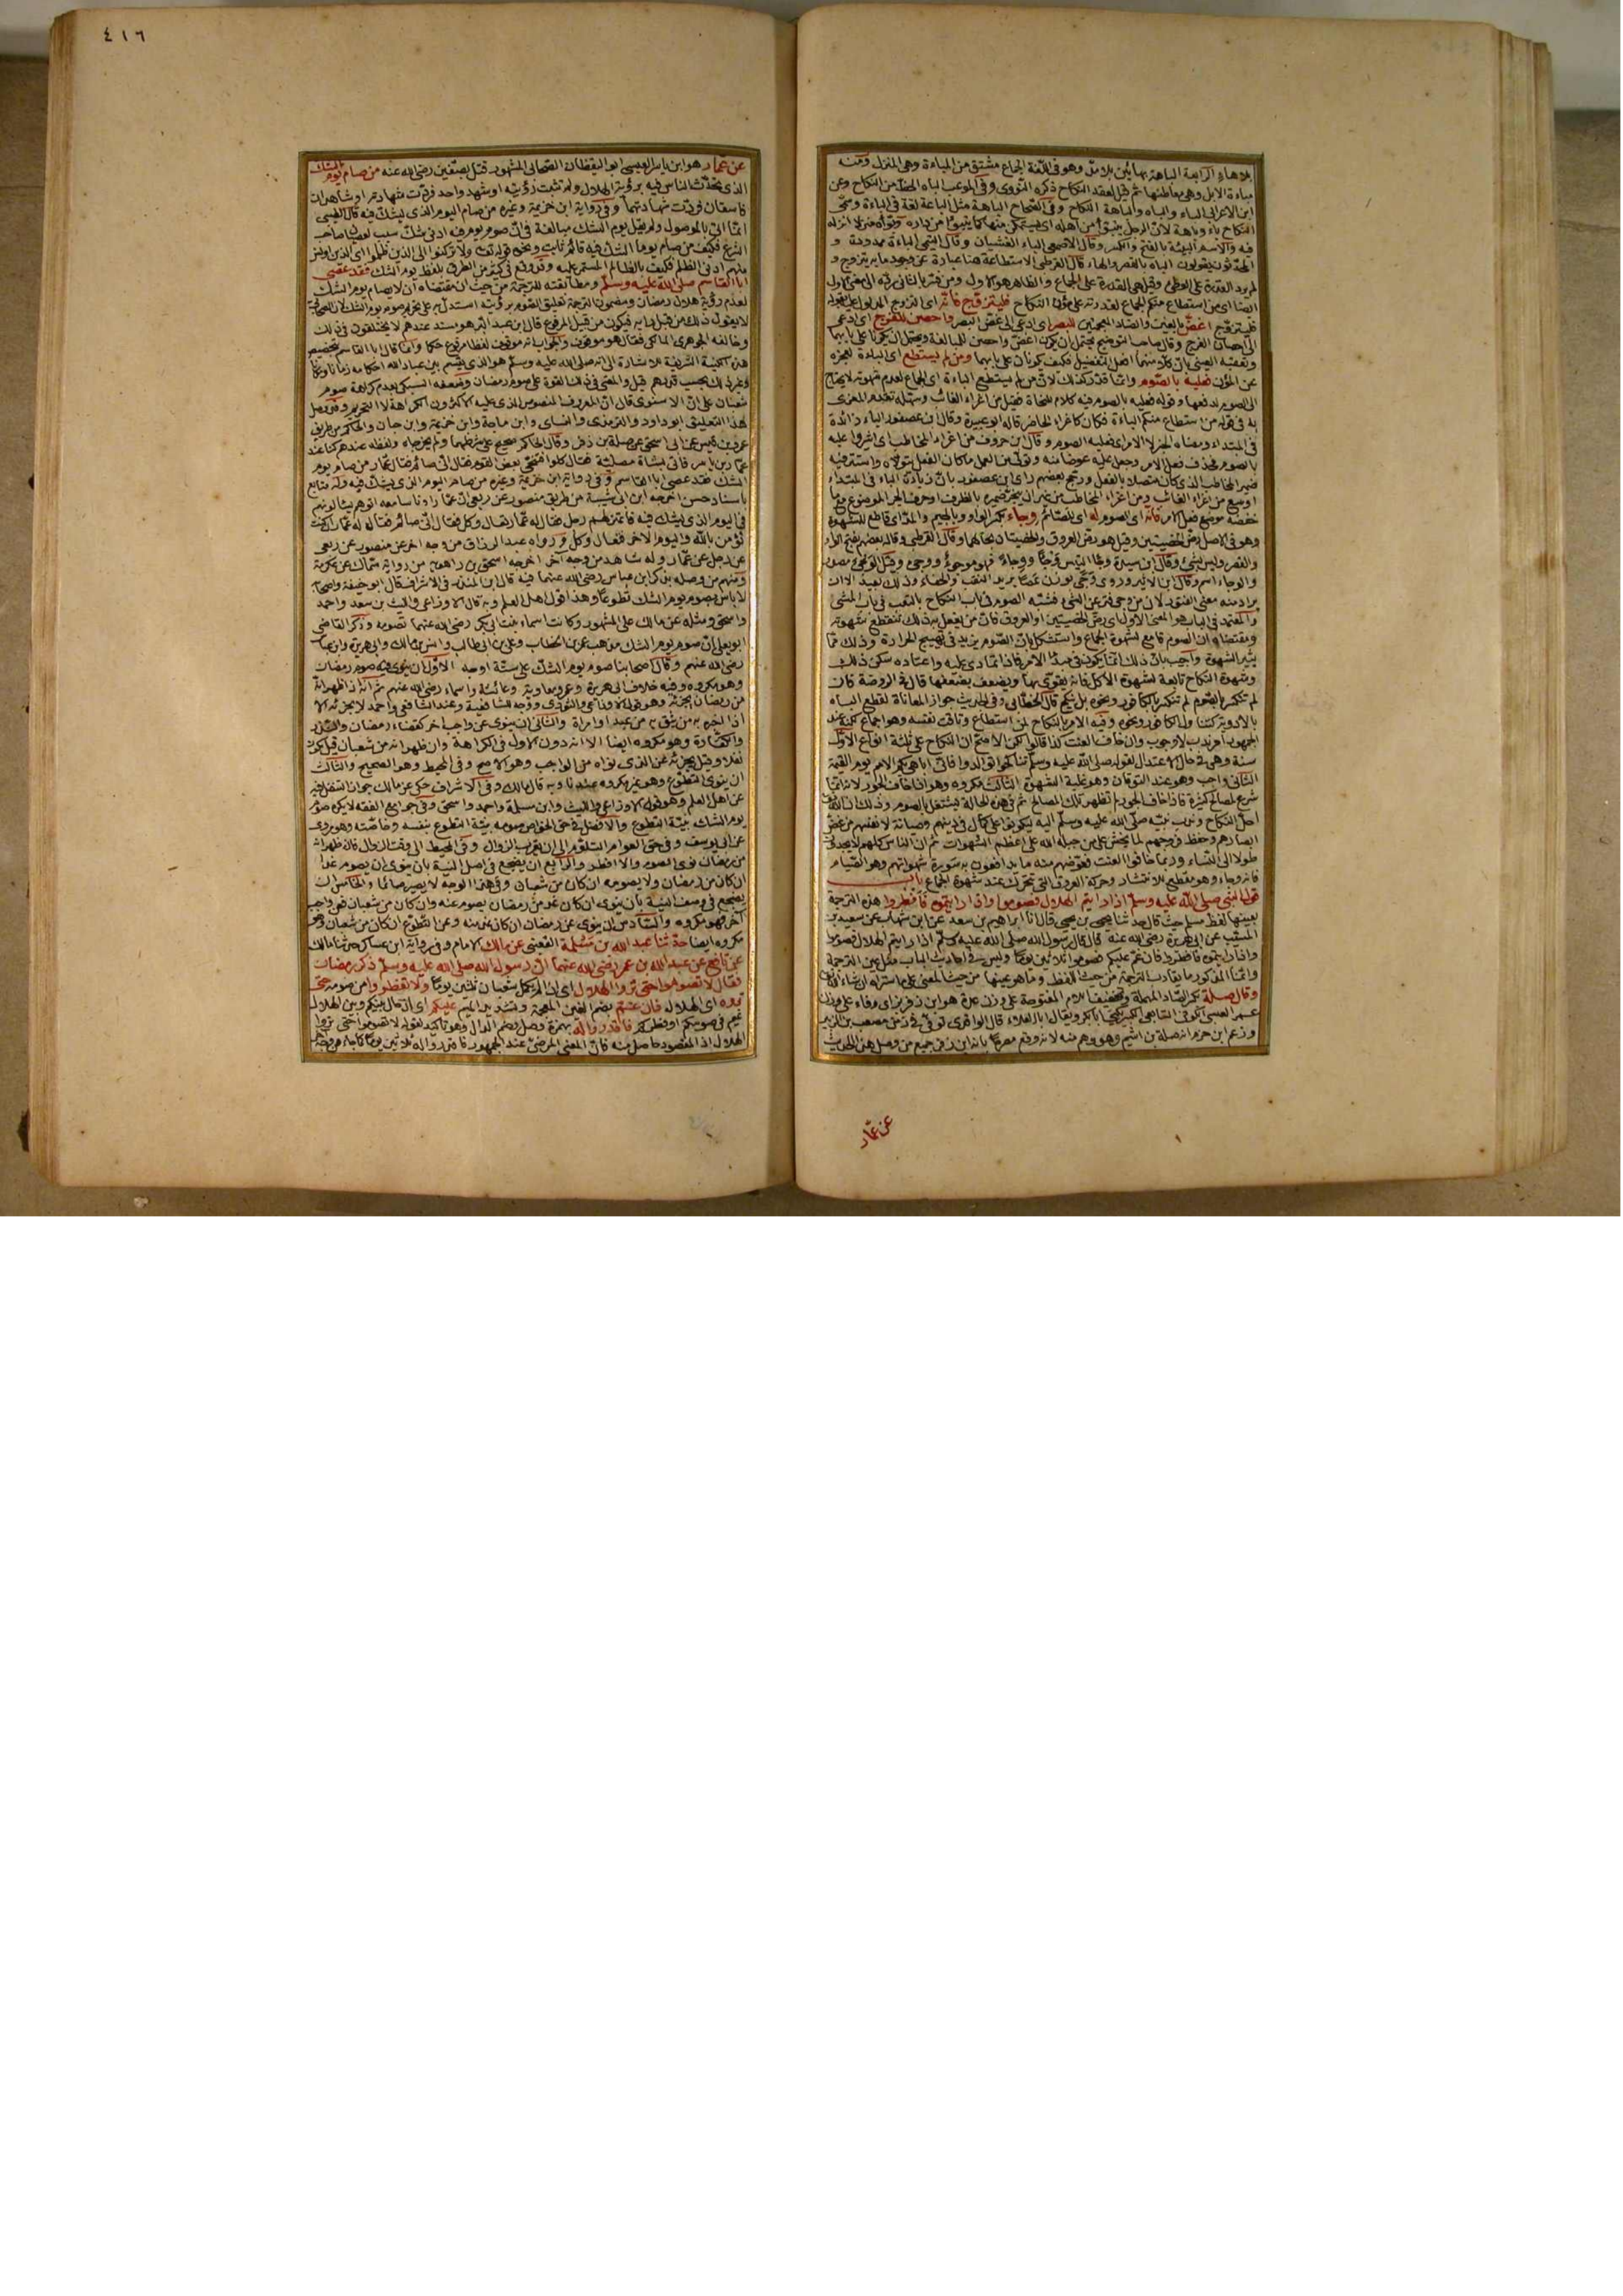 بلا هاء الرابعة الباهة بهائين بلا مدّ وهو فى اللغة الجماع مشتق من المباءة وهى المنزل ومنه
مباءة الابل وهى معاطنها ثم قيل لعقد النكاح ذكره النووى وفى الموعب الباه الحظ من النكاح وعن
ابن الاعرابى الباء والباه والباهة النكاح وفى الصحاح الباهة مثل الباعة لغة فى الباءة وسمى
النكاح باء وباهة لان الرجل يتبوّأ من اهله اى يستمكن منها كما يتبوّأ من داره
فيه والاسم البيئة بالفتح والكسر وقال الاصمعى الباء الغشيان وقال التيمى الباءة ممدودة و
المحدّثون يقولون الباه بالقصر والهاء قال القرطبى الاستطاعة هنا عبارة عن وجود ما به يتزوج و
لم يرد القدرة على الوطئ وقيل هى القدرة على الجماع والظاهر هو الاول
ايضا اى من استطاع منكم الجماع لقدرته على مؤن النكاح فليتزوّج فانّه اى التزوج
فليتزوّج اغضّ بالغين والضاد المعجمتين للبصر اى ادعى الى غضّ البصر واحصن للفرج اى ادعى
الى احصان الفرج وقال صاحب التوضيح يحتمل ان يكون اغضّ واحصن للمبالغة ويحتمل ان يكونا على بابهما
وتعقبه العينى بان كلا منهما افعل التفضيل فكيف يكونان على بابهما ومن لم يستطع اى الباءة لعجزه
عن المؤن فعليه بالصّوم وانما قدّر كذلك لان من لم يستطع الباءة اى الجماع لعدم شهوته لا يحتاج
الى الصوم لدفعها وقوله فعليه بالصوم فيه كلام للنحاة فقيل من اغراء الغائب وسهله تقدم المغرى
به فى قوله من استطاع منكم الباءة فكان كاغراء الحاضر قاله ابو عبيدة وقال ابن عصفور الباء زائدة
فى المبتداء ومعناه الخبر لا الامر اى فعليه الصوم وقال ابن خروف من اغراء المخاطب اى اشيروا عليه
بالصوم فحذف فعل الامر وجعل عليه عوضا منه وتولى من العمل ما كان الفعل يتولاه واستتر فيه
ضمير المخاطب الذى كان متصلا بالفعل ورجح بعضهم راى ابن عصفور بان زيادة الباء فى المبتداء
اوسع من اغراء الغائب ومن اغراء المخاطب من غير ان ينجر ضميره بالظرف او حرف الجر الموضوع مع ما
خفضه موضع فعل الامر فانّه اى الصوم له اى للصّائم وجاء بكسر الواو وبالجيم والمدّ اى قاطع للشهوة
وهو فى الاصل رضّ الخصيتين وقيل هو رضّ العروق والخصيتان بحالهما وقال القرطبى وقاله بعضهم بفتح الواو
والقصر وليس بشئ وقال ابن سيدة وجأ التيس وجأ ووجاء فهو موجوء ووجئ
والوجاء اسم وقال ابن الاثير وروى وجى بوزن عصا يريد التعب والحفاء وذلك بعيد الا ان
يراد منه معنى الفتور لان من وجى فتر عن المشى فشبّه الصوم فى باب النكاح بالتعب فى باب المشى
والمعتمد فى الباب هو المعنى الاول اى رضّ الخصيتين او العروق فان من يفعل به ذلك تنقطع شهوته
ومقتضاه ان الصوم قامع لشهوة الجماع واستشكل بان الصّوم يزيد فى تهييج الحرارة وذلك مما
يثير الشهوة واجيب بان ذلك انما يكون فى مبدأ الامر فاذا تمادى عليه واعتاده سكن ذلك
وشهوة النكاح تابعة لشهوة الاكل فانه يقوى بها ويضعف بضعفها قال فى الروضة فان
لم تنكسر بالصّوم لم تنكسر بالكافور ونحوه بل ينكح قال الخطابى وفى الحديث جواز المعاناة لقطع الباه
بالادوية
الجمهور امر ندب لا وجوب وان خاف العنت كذا قالوا لكن الاصح ان النكاح على ثلثة انواع الاوّل
سنة وهى فى حال الاعتدال لقوله صلى الله عليه وسلم تناكحوا توالدوا فانى اباهى بكم الامم يوم القيمة
الثانى واجب وهو عند التوقان وهو غلبة الشهوة الثالث مكروه وهو اذا خاف الجور لانه انما
شرع لمصالح كثيرة فاذا خاف الجور لم تظهر تلك المصالح ثم فى هذه الحالة يشتغل بالصوم وذلك ان الله تعالى
احلّ النكاح وندب نبيّه صلى الله عليه وسلم اليه ليكونوا على كمال فى دينهم وصيانة لانفسهم من غضّ
ابصارهم وحفظ فروجهم لما يخشى على من جبله الله على اعظم الشهوات ثم ان الناس كلهم لا يجدون
طولا الى النساء وربما خافوا العنت فعوّضهم منه ما يدافعون به سورة شهواتهم وهو الصّيام
فانه وجاء وهو مقطع للانتشار وحركة العروق التى تتحرّك عند شهوة الجماع باب
قول النبى صلى الله عليه وسلم اذا رايتم الهلال فصوموا واذا رايتموه فافطروا هذه الترجمة
بعينها لفظ مسلم حيث قال حدثنا يحيى بن يحيى قال انا ابراهيم بن سعد عن ابن شهاب عن سعيد بن
المسيب عن ابى هريرة رضى الله عنه قال قال رسول الله صلى الله عليه وسلم اذا رايتم الهلال فصوموا
واذا رايتموه فافطروا فان غمّ عليكم فصوموا ثلاثين يوما وليس فى احاديث الباب مثل عين الترجمة
وانما المذكور ما يقارب الترجمة من حيث اللفظ وما هو عينها من حيث المعنى على ما ستراه ان شاء الله تعالى
وقال صلة بكسر الصّاد المهملة وتخفيف اللام المفتوحة على وزن عدة هو ابن زفر بزاى وفاء على وزن
عمر العبسى الكوفى التابعى الكبير يكنى ابا بكر ويقال ابا العلاء قال الواقدى توفى فى زمن مصعب بن الزبير
وزعم ابن حزم انه صلة بن اشيم وهو وهم منه لانه وقع مصرحا بانه ابن زفر فى جميع من وصل هذا الحديث
عن عمّار
٤١٦
عن عمار هو ابن ياسر العبسى ابو اليقظان الصحابى المشهور قتل بصفّين رضى الله عنه من صام يوم الشك
الذى يتحدّث الناس فيه برؤية الهلال ولم تثبت رؤيته او شهد واحد فردّت شهادته او شاهدان
فاسقان فردّت شهادتهما وفى رواية ابن خزيمة وغيره من صام اليوم الذى يشك فيه قال الطيبى
انما اتى بالموصول ولم يقل يوم الشك مبالغة فى ان صوم يوم فيه ادنى شك سبب لعصيان صاحب
الشرع فكيف من صام يوما الشك فيه قائم ثابت ونحوه قوله تعالى ولا تركنوا الى الذين ظلموا اى الذين اونس
منهم ادنى الظلم فكيف بالظالم المستمر عليه وقد وقع فى كثير من الطرق بلفظ يوم الشك فقد عصى
ابا القاسم صلى الله عليه وسلم ومطابقته للترجمة من حيث ان مقتضاه ان لا يصام يوم الشك
لعدم رؤية هلال رمضان ومضمون الترجمة تعليق الصوم برؤيته استدل به على تحريم صوم يوم الشك لان الصحابى
لا يقول ذلك من قبل رايه فيكون من قبيل المرفوع قال ابن عبد البر هو مسند عندهم لا يختلفون فى ذلك
وخالفه الجوهرى المالكى فقال هو موقوف والجواب انه موقوف لفظا مرفوع حكما وانما قال ابا القاسم بتخصيص
هذه الكنية الشريفة للاشارة الى انه صلى الله عليه وسلم هو الذى يقسم بين عباد الله احكامه زمانا ومكانا
وغير ذلك بحسب قدرهم قيل والمعنى فى ذلك القوة على صوم رمضان وضعفه السبكى بعدم كراهة صوم
شعبان على ان الاسنوى قال ان المعروف المنصوص الذى عليه الاكثرون الكراهة لا التحريم وقد وصل
هذا التعليق ابو داود والترمذى والنسائى وابن ماجة وابن خزيمة وابن حبان والحاكم من طريق
عمرو بن قيس عن ابى اسحق عن صلة بن زفر وقال الحاكم صحيح على شرطهما ولم يخرجاه ولفظه عندهم كنا عند
عمار بن ياسر فاتى بشاة مصلية فقال كلوا فتنحّى بعض القوم فقال انى صائم فقال عمار من صام يوم
الشك فقد عصى ابا القاسم وفى رواية ابن خزيمة وغيره من صام اليوم الذى يشك فيه وله متابع
باسناد حسن اخرجه ابن ابى شيبة من طريق منصور عن ربعى ان عمارا وناسا معه اتوهم يسالونهم
فى اليوم الذى يشك فيه فاعتزلهم رجل فقال له عمار تعال وكل فقال انى صائم فقال له عمار ان كنت
تؤمن بالله واليوم الاخر فتعال وكل ورواه عبد الرزاق من وجه اخر عن منصور عن ربعى
عن رجل عن عمار وله شاهد من وجه آخر اخرجه اسحق بن راهويه من رواية سماك عن عكرمة
ومنهم من وصله بذكر ابن عباس رضى الله عنهما فيه قال ابن المنذر فى الاشراف قال ابو حنيفة واصحابه
لا باس بصوم يوم الشك تطوعا وهذا قول اهل العلم وبه قال الاوزاعى والليث بن سعد واحمد
واسحق ومثله عن مالك على المشهور وكانت اسماء بنت ابى بكر رضى الله عنهما تصومه وذكر القاضى
ابو يعلى ان صوم يوم الشك مذهب عمر بن الخطاب وعلى بن ابى طالب وانس بن مالك وابى هريرة وابن عباس
رضى الله عنهم وقال اصحابنا صوم يوم الشك على ستة اوجه الاوّل ان ينوى فيه صوم رمضان
وهو مكروه وفيه خلاف ابى هريرة وعمرو ومعاوية وعائشة واسماء رضى الله عنهم ثم انه اذا ظهر انه
من رمضان يجزئه وهو قول الاوزاعى والثورى ووجه للشافعية وعند الشافعى واحمد لا يجزئه الا
اذا اخبره به من يثق به من عبد او امراة والثانى ان ينوى عن واجب اخر كقضاء رمضان والنذر
والكفارة وهو مكروه ايضا الا انه دون الاول فى الكراهة وان ظهر انه من شعبان قيل يكون
نفلا وقيل يجزئه عن الذى نواه من الواجب وهو الاصح وفى المحيط وهو الصحيح والثالث
ان ينوى التطوع وهو غير مكروه عندنا وبه قال مالك وفى الاشراف حكى عن مالك جواز النفل فيه
عن اهل العلم وهو قول الاوزاعى والليث وابن مسلمة واحمد واسحق وفى جوامع الفقه لا يكره صوم
يوم الشك بنيّة التطوع والافضل فى حق الخواص صومه بنيّة التطوع بنفسه وخاصّته وهو مروى
عن ابى يوسف وفى حق العوام التلوّم الى ان يقرب الزوال وفى المحيط الى وقت الزوال فان ظهر انه
من رمضان نوى الصوم والا افطر والرابع ان يضجع فى اصل النية بان ينوى ان يصوم غدا
ان كان من رمضان ولا يصومه ان كان من شعبان وفى هذا الوجه لا يصير صائما والخامس ان
يضجع فى وصف النية بان ينوى ان كان غد من رمضان يصوم عنه وان كان من شعبان فعن واجب
آخر فهو مكروه والسّادس ان ينوى عن رمضان ان كان غد منه وعن التطوّع ان كان من شعبان وهو
مكروه ايضا حدّثنا عبد الله بن مسلمة القعنبى عن مالك الامام وفى رواية ابن عساكر حدثنا مالك
عن نافع عن عبد الله بن عمر رضى الله عنهما انّ رسول الله صلى الله عليه وسلم ذكر رمضان
فقال لا تصوموا حتى تروا الهلال اى ان لم يكمل شعبان ثلثين يوما ولا تفطروا من صومه حتى
تروه اى الهلال فان غمّ بضم الغين المعجمة وتشديد الميم عليكم اى ان حال بينكم وبين الهلال
غيم فى صومكم او فطركم فاقدروا له بهمزة وصل وضم الدال وهو تاكيد لقوله لا تصوموا حتى تروا
الهلال اذ المقصود حاصل منه فانّ المعنى المرضىّ عند الجمهور فاقدروا له ثلاثين يوما كما جاء